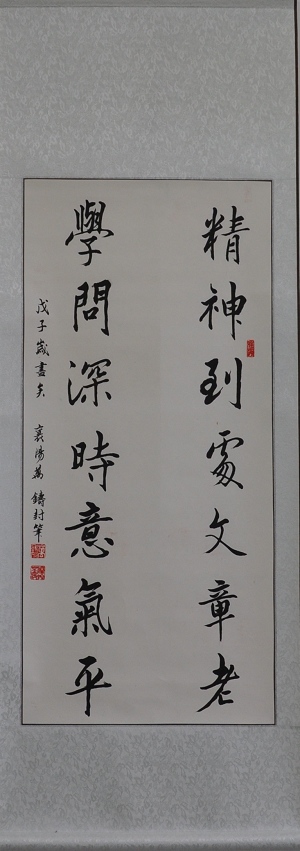 精神到處文章老
學問深時意氣平
戊子歲書矣 襄陽萬鑄封筆